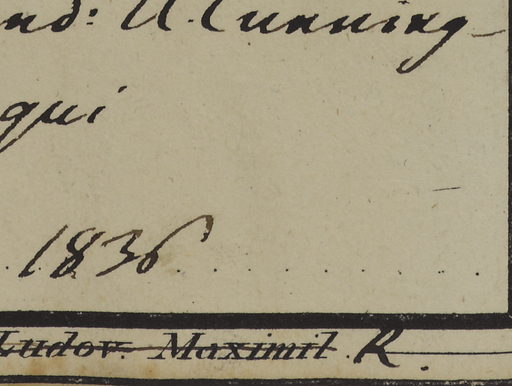 nd: A. Cunning-
qui
1836
Ludov. Maximil. R.